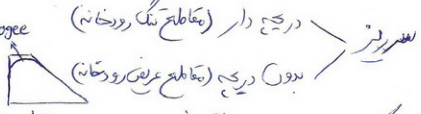 ogee
دریچه دار (مقاطع تنگ رودخانه)
سرریز
بدون دریچه (مقاطع عریض رودخانه)